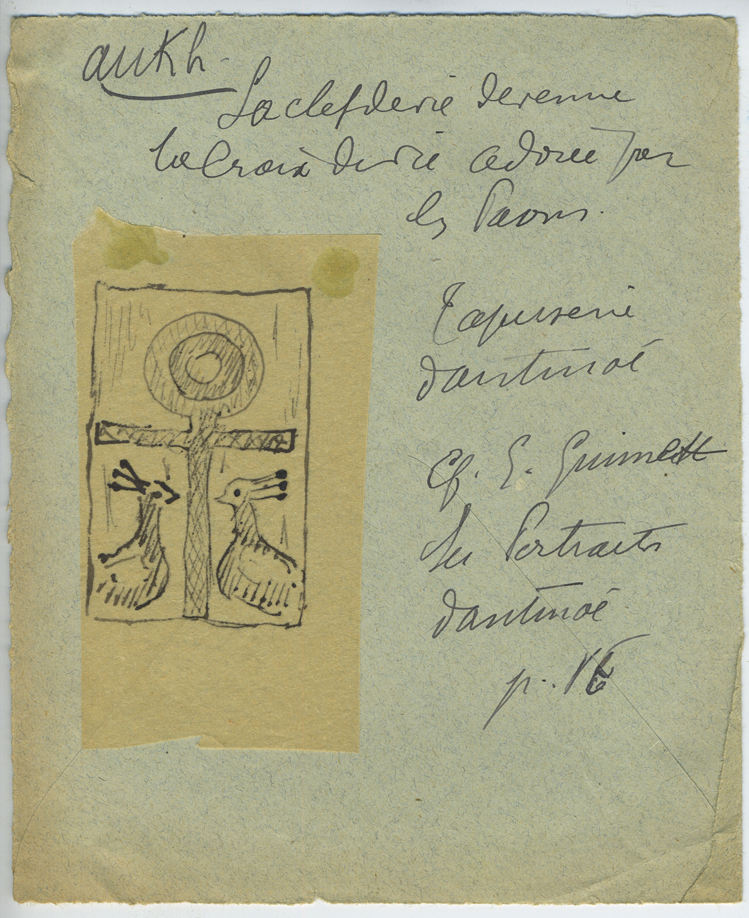 ankh.
La clef de vie devenue
la Croix de vie adorée par
les Paons.
Tapisserie
d'antinoé
Cf. E. Guimet
Les Portraits
d'antinoé
p. 16